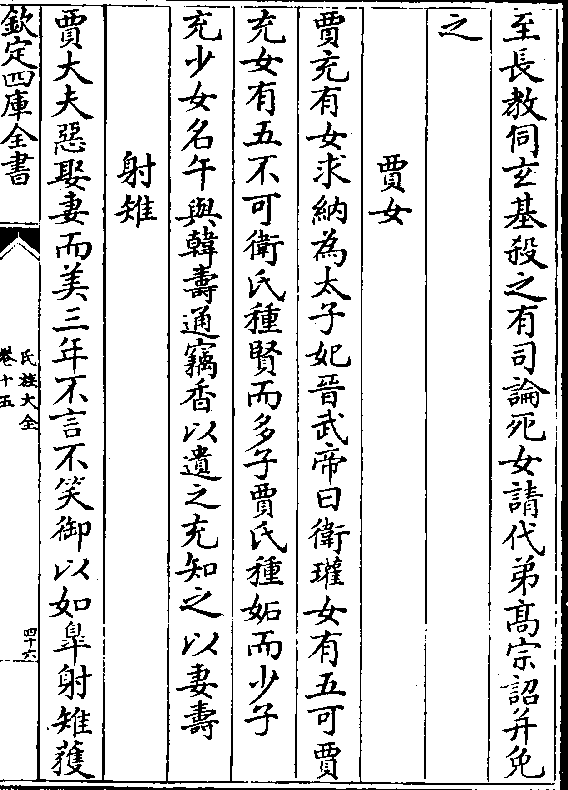 至長教伺玄基殺之有司論死女請代弟髙宗詔并免
之
賈女
賈充有女求納為太子妃晉武帝曰衛瓘女有五可賈
充女有五不可衛氏種賢而多子賈氏種妬而少子
充少女名午與韓壽通竊香以遺之充知之以妻壽
射雉
賈大夫惡娶妻而美三年不言不笑御以如臯射雉獲
欽定四庫全書
氏族大全
卷十五
四十六